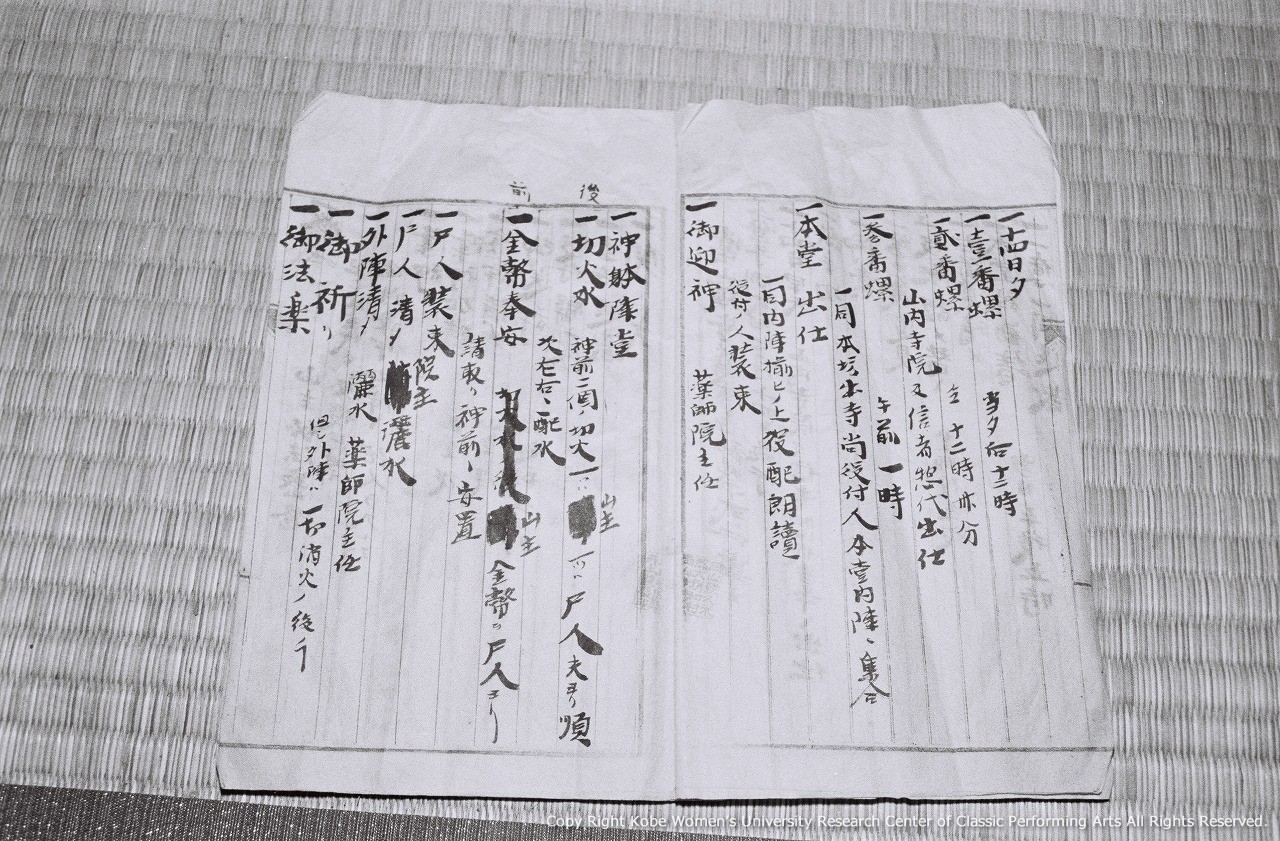 一十四日夕
一壹番螺 当夕后十二時
一貳番螺 仝 十二時卅分
山内寺院及信者惣代出仕
一参番螺 午前一時
一同本坊出寺尚役付人本堂内陣ニ集合
一本堂出仕
一同内陣揃ヒノ上役配朗讀
役付ノ人装束
一御迎神 薬師院主任
一神躰降堂
後
一切火水 神前二個ノ切火 一ハ 山主 一ハ尸人夫ヨリ順
次左右ニ配水
前
一金幣奉安 山主 金幣ヲ尸人ヨリ
請取リ神前ニ安置
一尸人装束 院主
一尸人清メ 灑水
一外陣清メ 灑水 薬師院主任
一御祈リ 但シ外陣ハ一切消火ノ後
一御法楽
Copy Right Kobe Women's University Research Center of Classic Performing Arts All Rights Reserved.